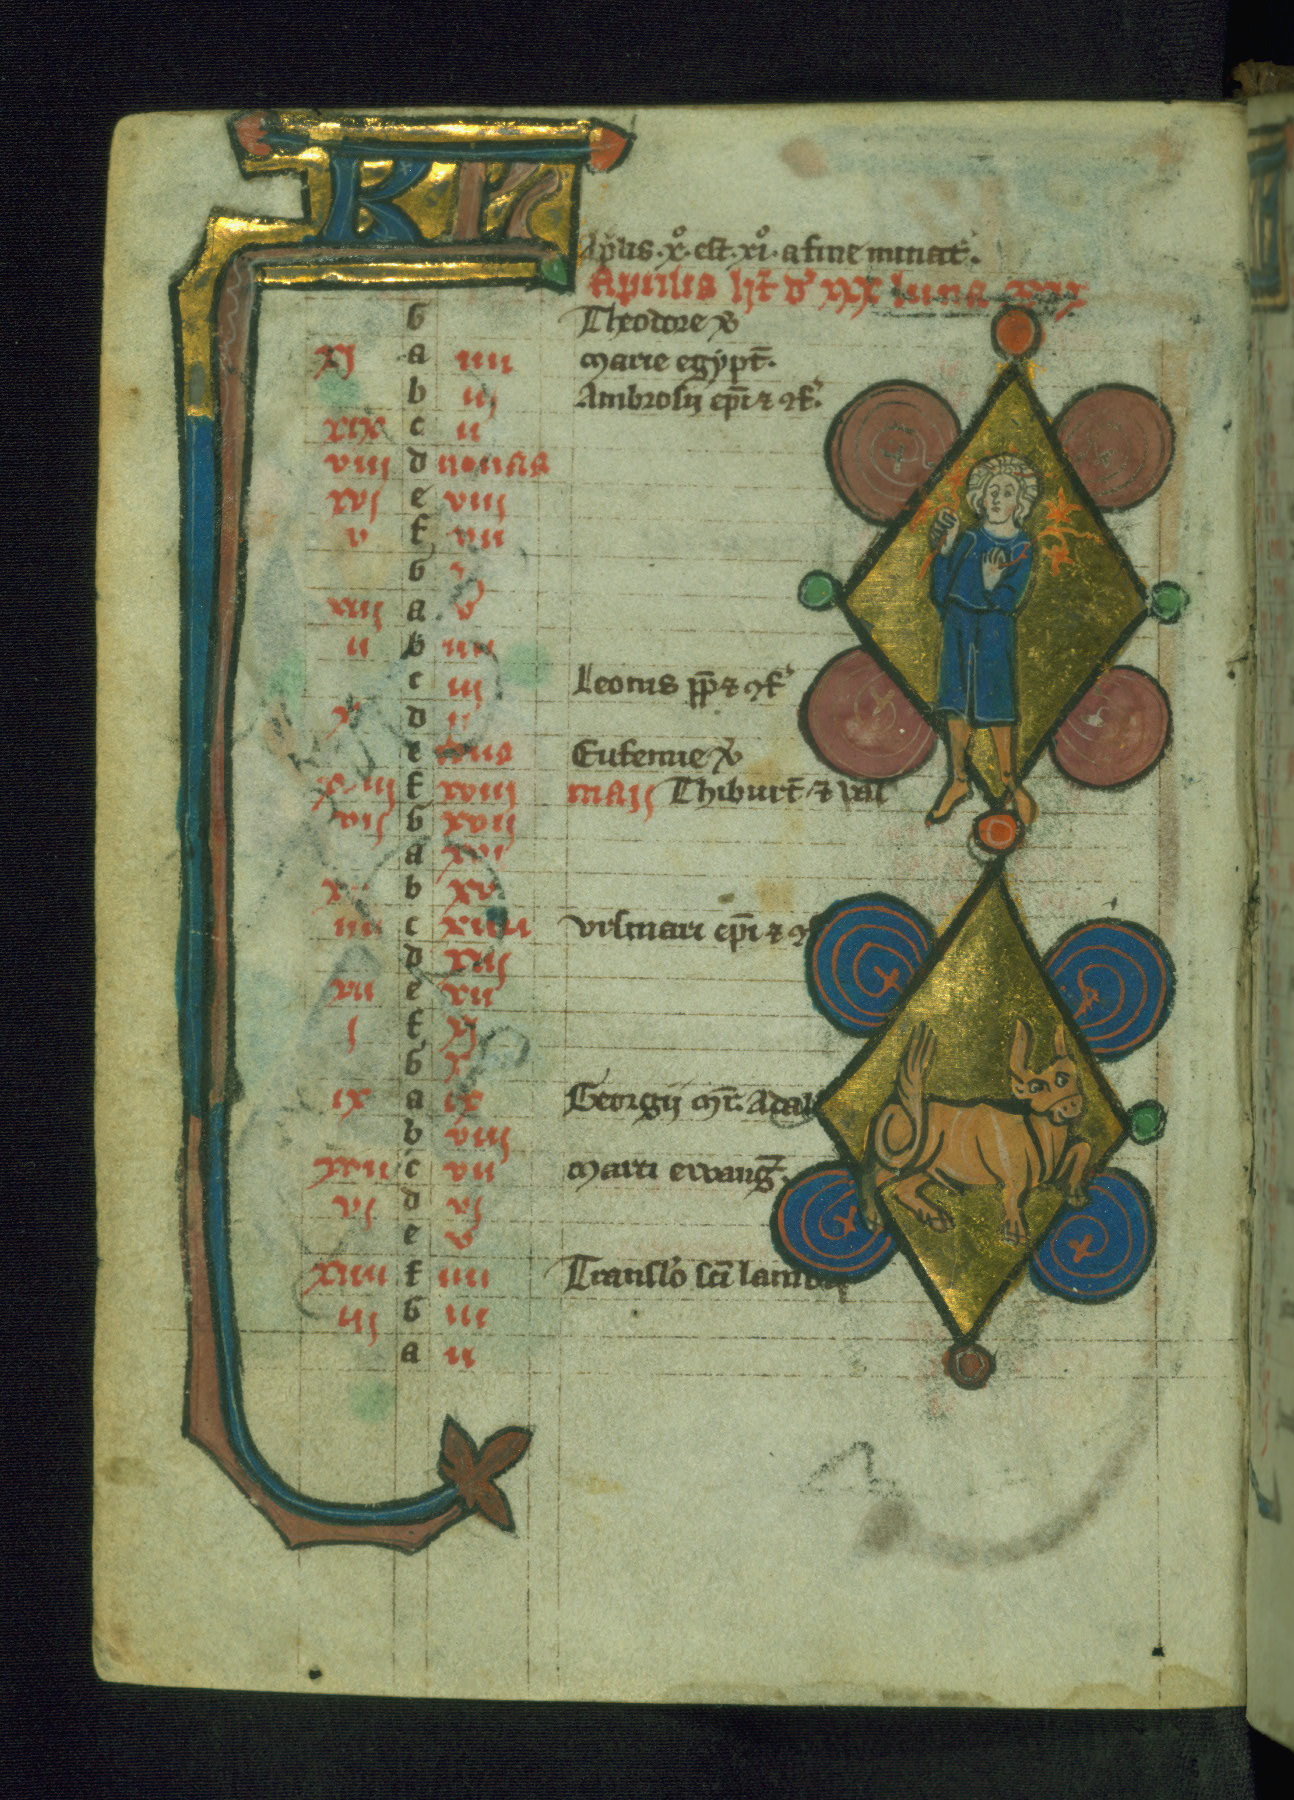 KL
Ap̄lis · x° · est · xi° · a fine minat᷑ ·
Aprilis ht̄ d' xxx luna xxix
G Theodore v̄
xj a iiii Marie egypt̄ ·
b iij Ambrosij ep̄i ⁊ ɔf'
xix c ii
viii d nonas
xvj e viii
v f vii
G vj
xiij a v
ii b iiii
c iij Leonis pp̄ ⁊ ɔf'
x d ii
e idus Eufemie v̄
xviij f xviij maij Thiburt̄ ⁊ val
vij G xvij
a xvj
xv b xv
iiii c xiiii Vrsmari ep̄i ⁊
d xiij
xii e xii
j f xj
G x
ix a ix Georgij mr̄ · Adal
b viij
xvii c vii Marci ewanḡ ·
vj d vj
e v
xiiii f iiii Translo᷑ sc̄i lamb
iij G iii
a ii